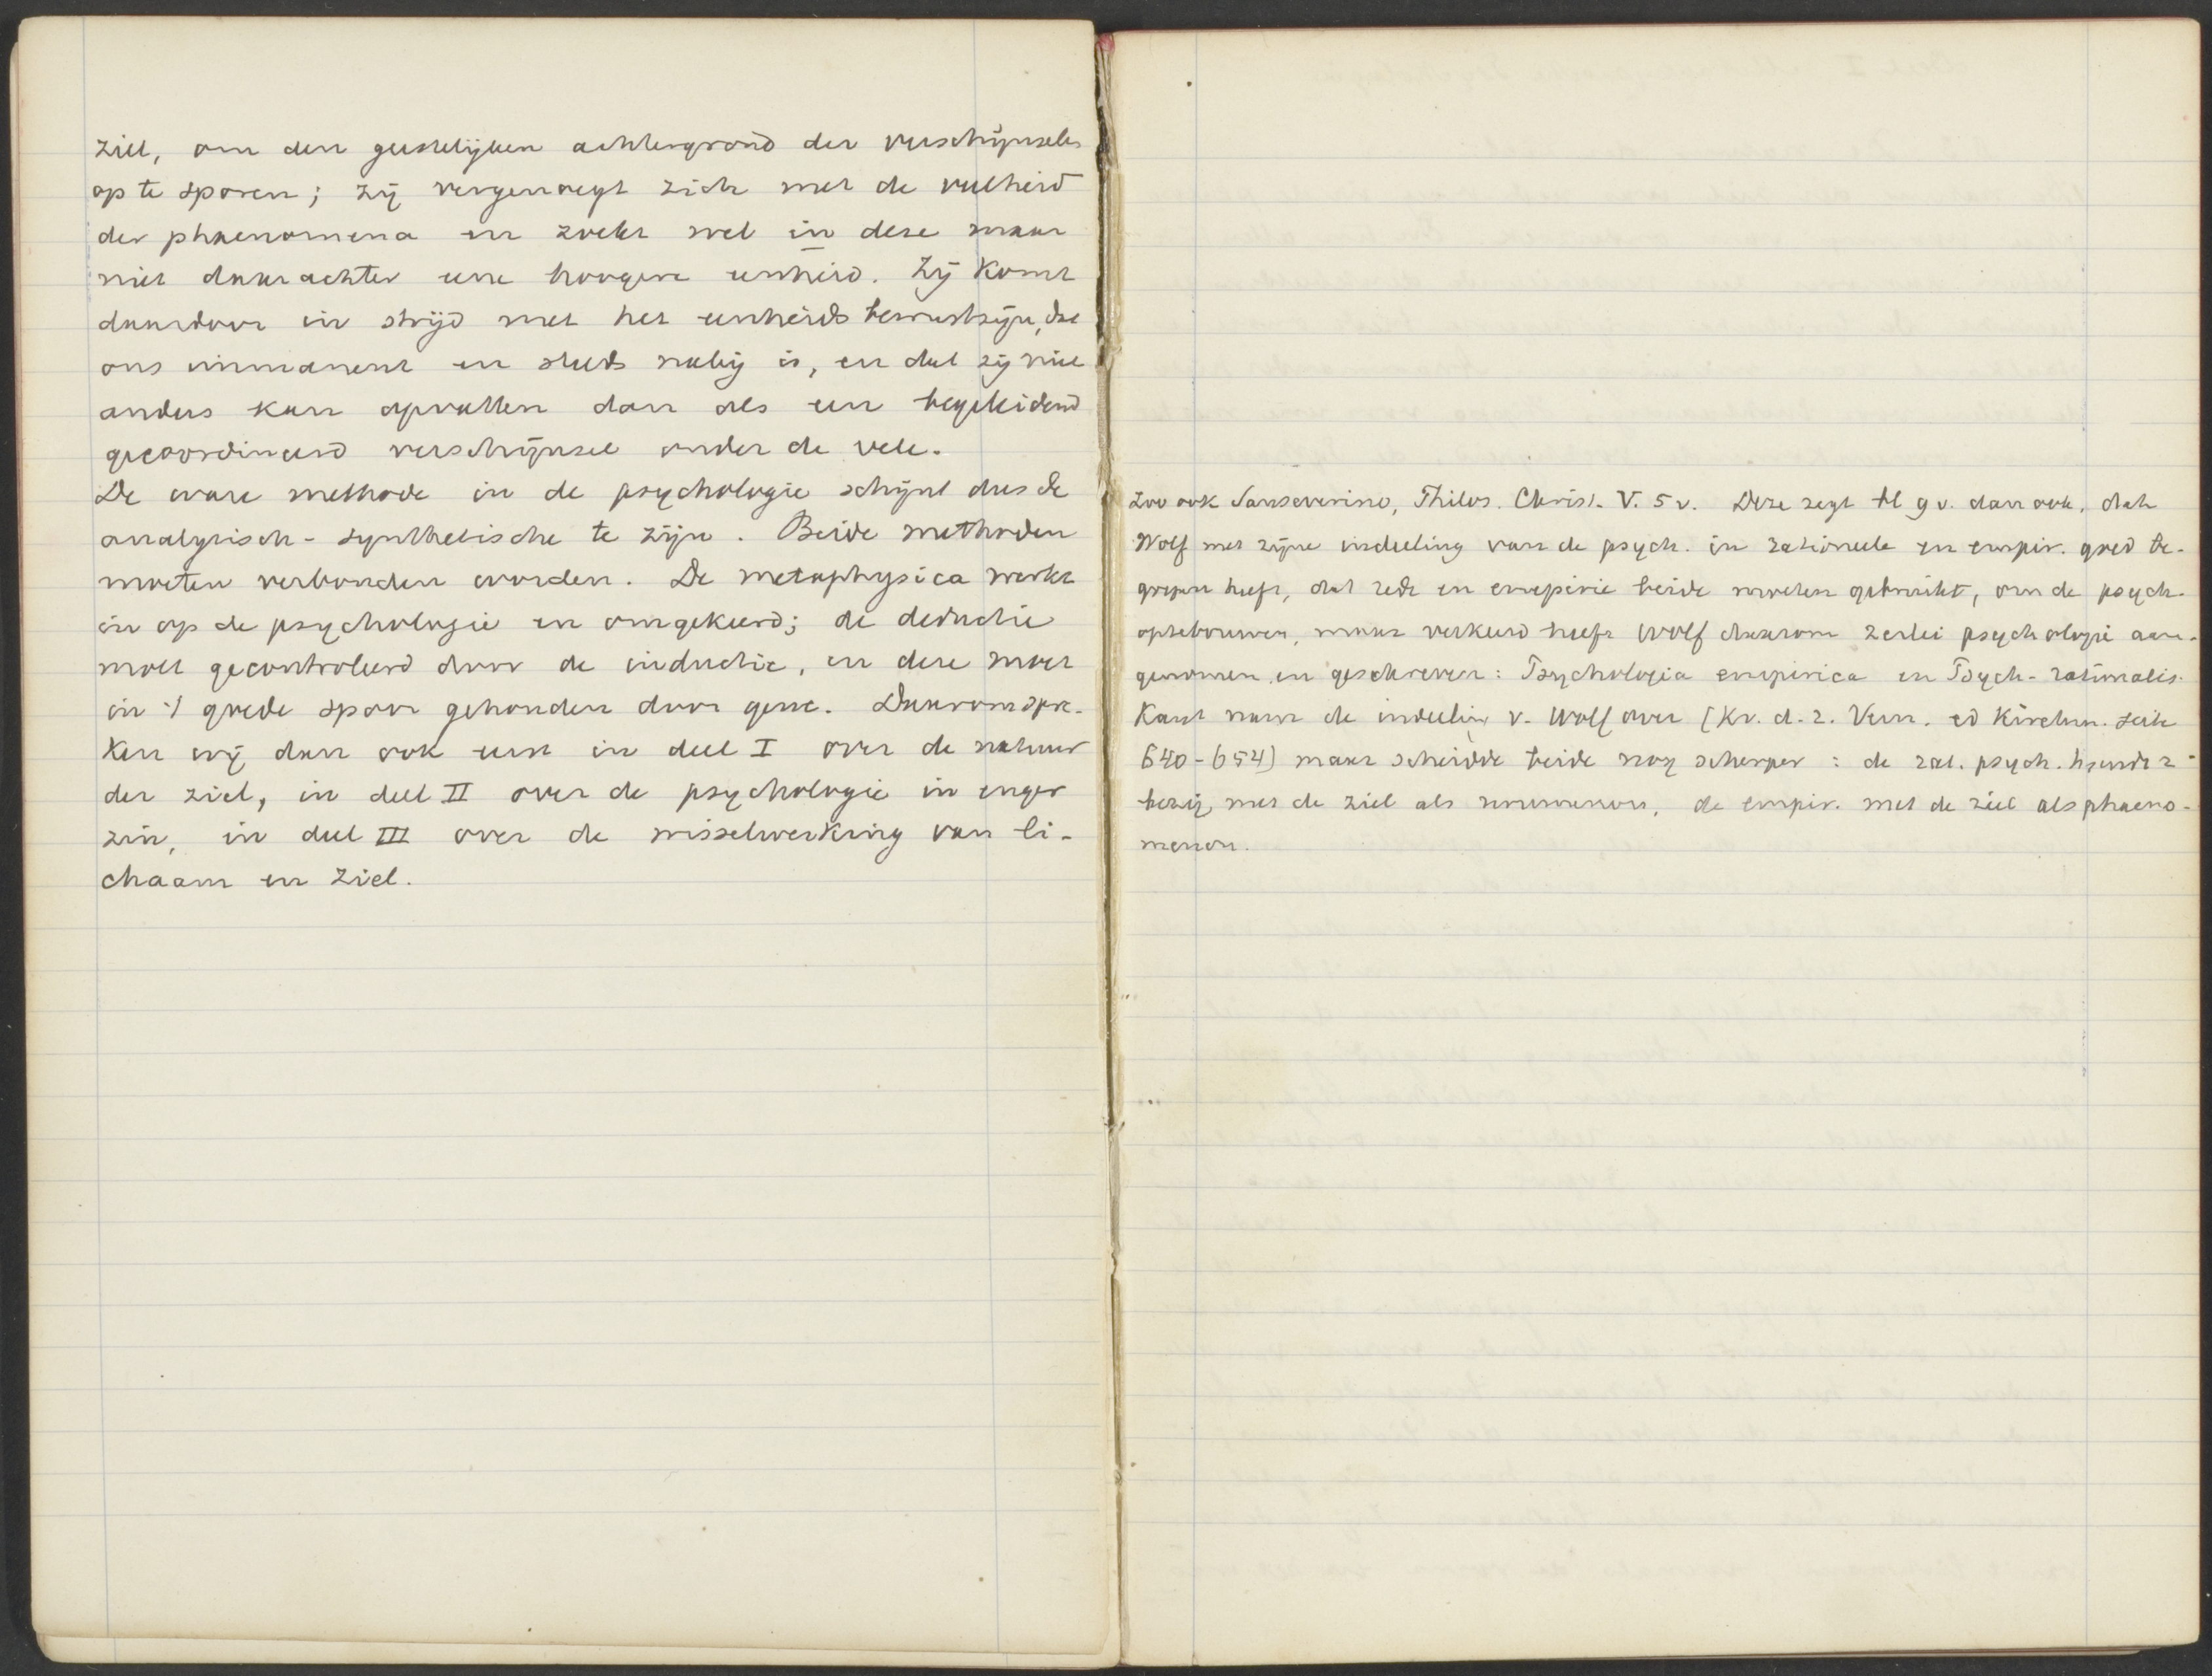 ziel, om den geestelijken achtergrond der verschijnselen
op te sporen; zij vergenoegt zich met de veelheid
der phaenomena en zoekt wel in deze maar
niet daarachter eene hoogere eenheid. Zij komt
daardoor in strijd met het eenheidsbewustzijn, dat
ons immanent en steeds nabij is, en dat zij niet
anders kan opvatten dan als een begeleidend
gecoordineerd verschijnsel onder de vele.
De ware methode in de psychologie schijnt dus de
analytisch-synthetische te zijn. Beide methoden
moeten verbonden worden. De metaphysica werkt
in op de psychologie en omgekeerd; de deductie
moet gecontroleerd door de inductie, en deze moet
in 't goede spoor gehouden door gene. Daarom spre-
ken wij dan ook eerst in deel I over de natuur
der ziel, in deel II over de psychologie in enger
zin, in deel III over de wisselwerking van li-
chaam en ziel.
Zoo ook Sanseverino, Philos. Christ. V. 5 v. Deze zegt bl 9 v. dan ook, dat
Wolf met zijne indeeling van de psych. in rationeele en empir. goed be-
grepen heeft, dat rede en empirie beide moeten gebruikt, om de psych.
optebouwen, maar verkeerd heeft Wolf daarom 2erlei psychologie aan-
genomen en geschreven: Psychologia empirica en Psych. rationalis.
Kant nam de indeeling v. Wolf over (Kr. d. r. Vern. ed Kirchm. Seite
640-654) maar scheidde beide nog scherper: de rat. psych. houdt z.
bezig met de ziel als noumenon, de empir. met de ziel als phaeno-
menon.